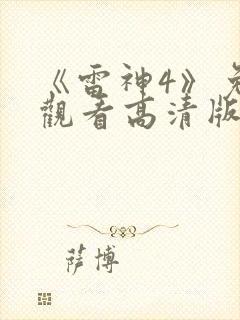 《雷神4》免
觀看高清版
薩博